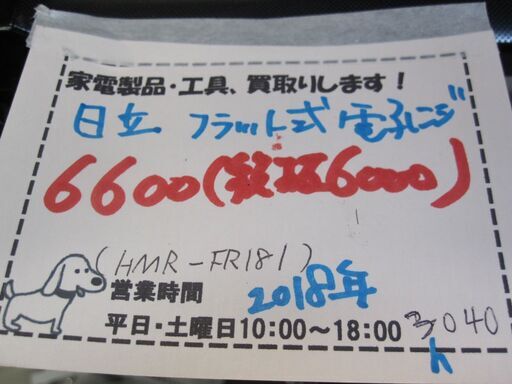 家電製品・工具、買取りします！
日立 フラット式電子レンジ
6600(税抜6000)
(HMR-FR181)
営業時間 2018年
平日・土曜日10:00～18:00
3040
h